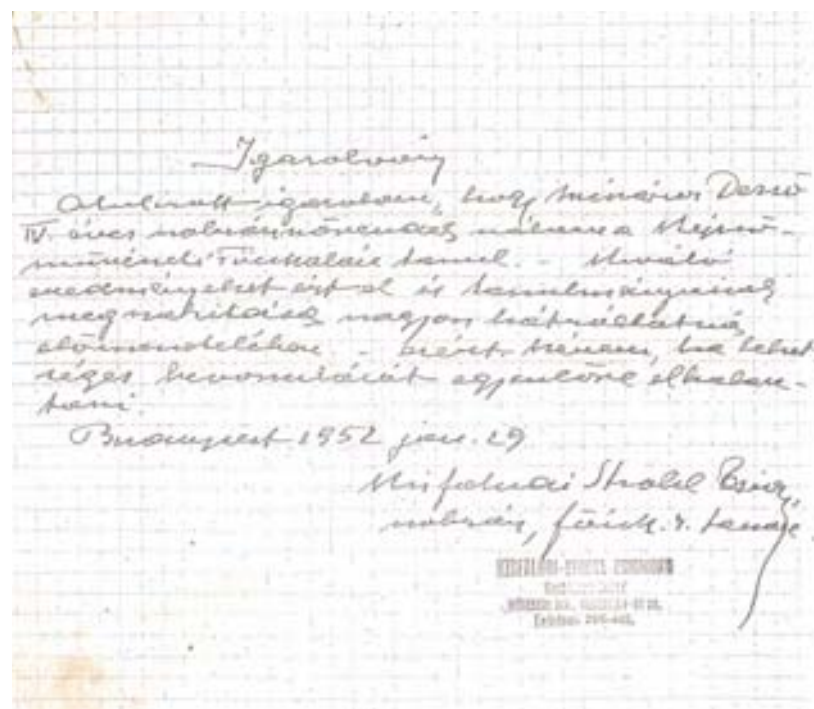 Igazolvány
Alulírott igazolom, hogy Mináros Dezső
IV. éves szobrásznövendék nálam a Képző-
művészeti Főiskolán tanul. - Kiváló
eredményeket ért el és tanulmányainak
megszakítása nagyon hátráltatná
előmenetelében - ezért kérem, ha lehet
séges bevonulását egyenlőre elhalasz-
tani.
Budapest 1952 jan. 29
Kisfaludi Strobl Zsigm.
szobrász, főisk. r. tanár.
KISFALUDI-STROBL ZSIGMOND